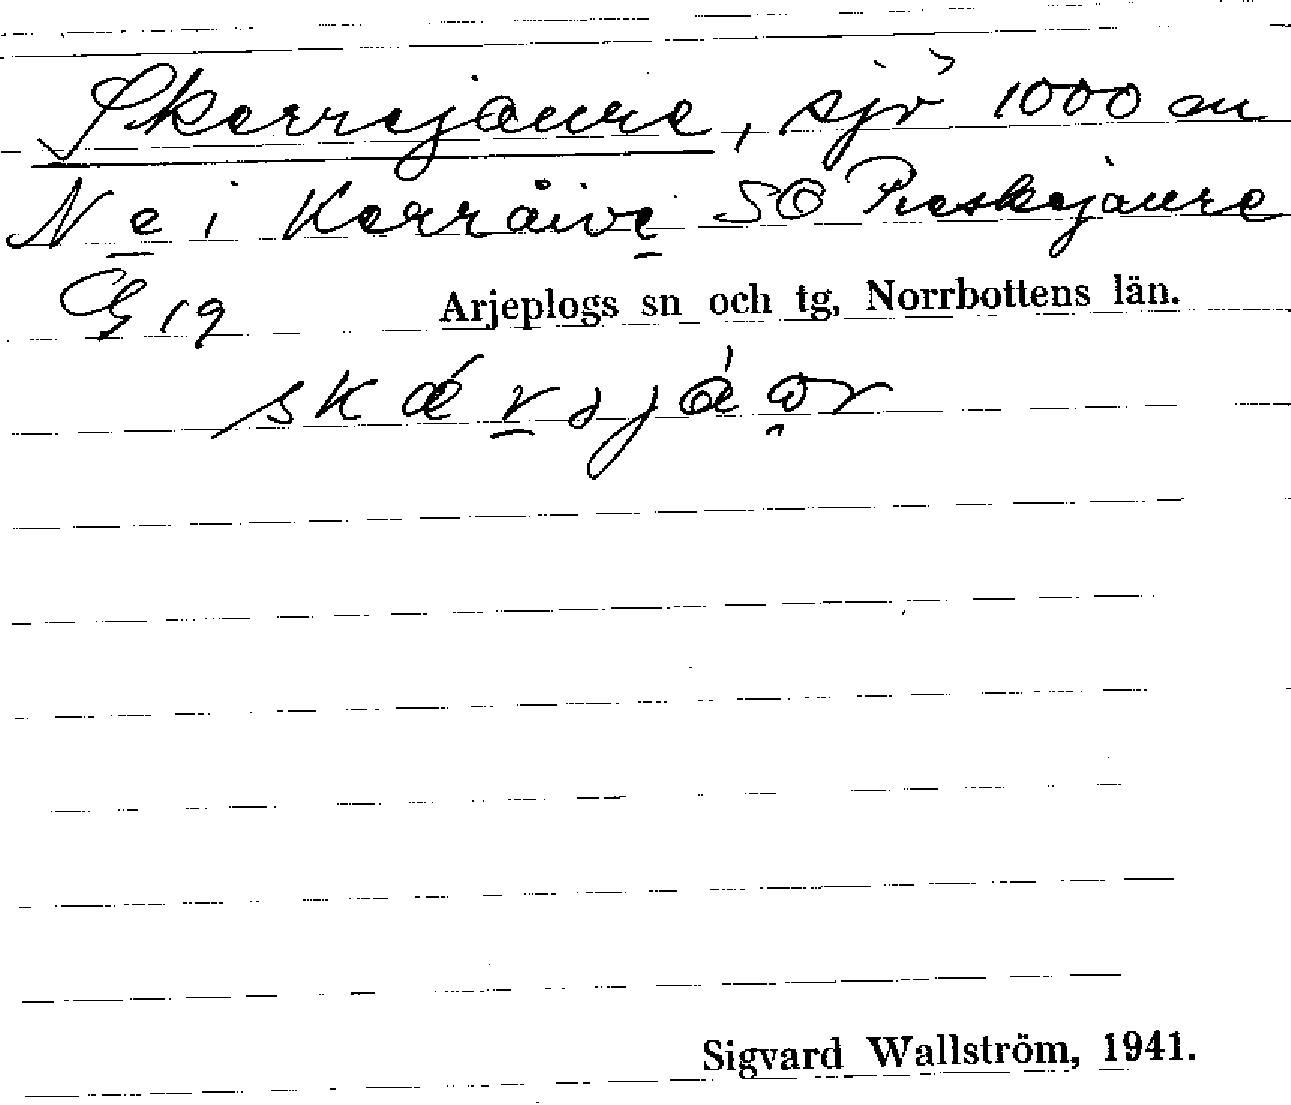 Skerrejaure, sjö 1000 m
N e i Kerráive SO Pieskejaure
G 19 Arjeplogs sn och tg, Norrbottens län.
Sigvard Wallström, 1941.